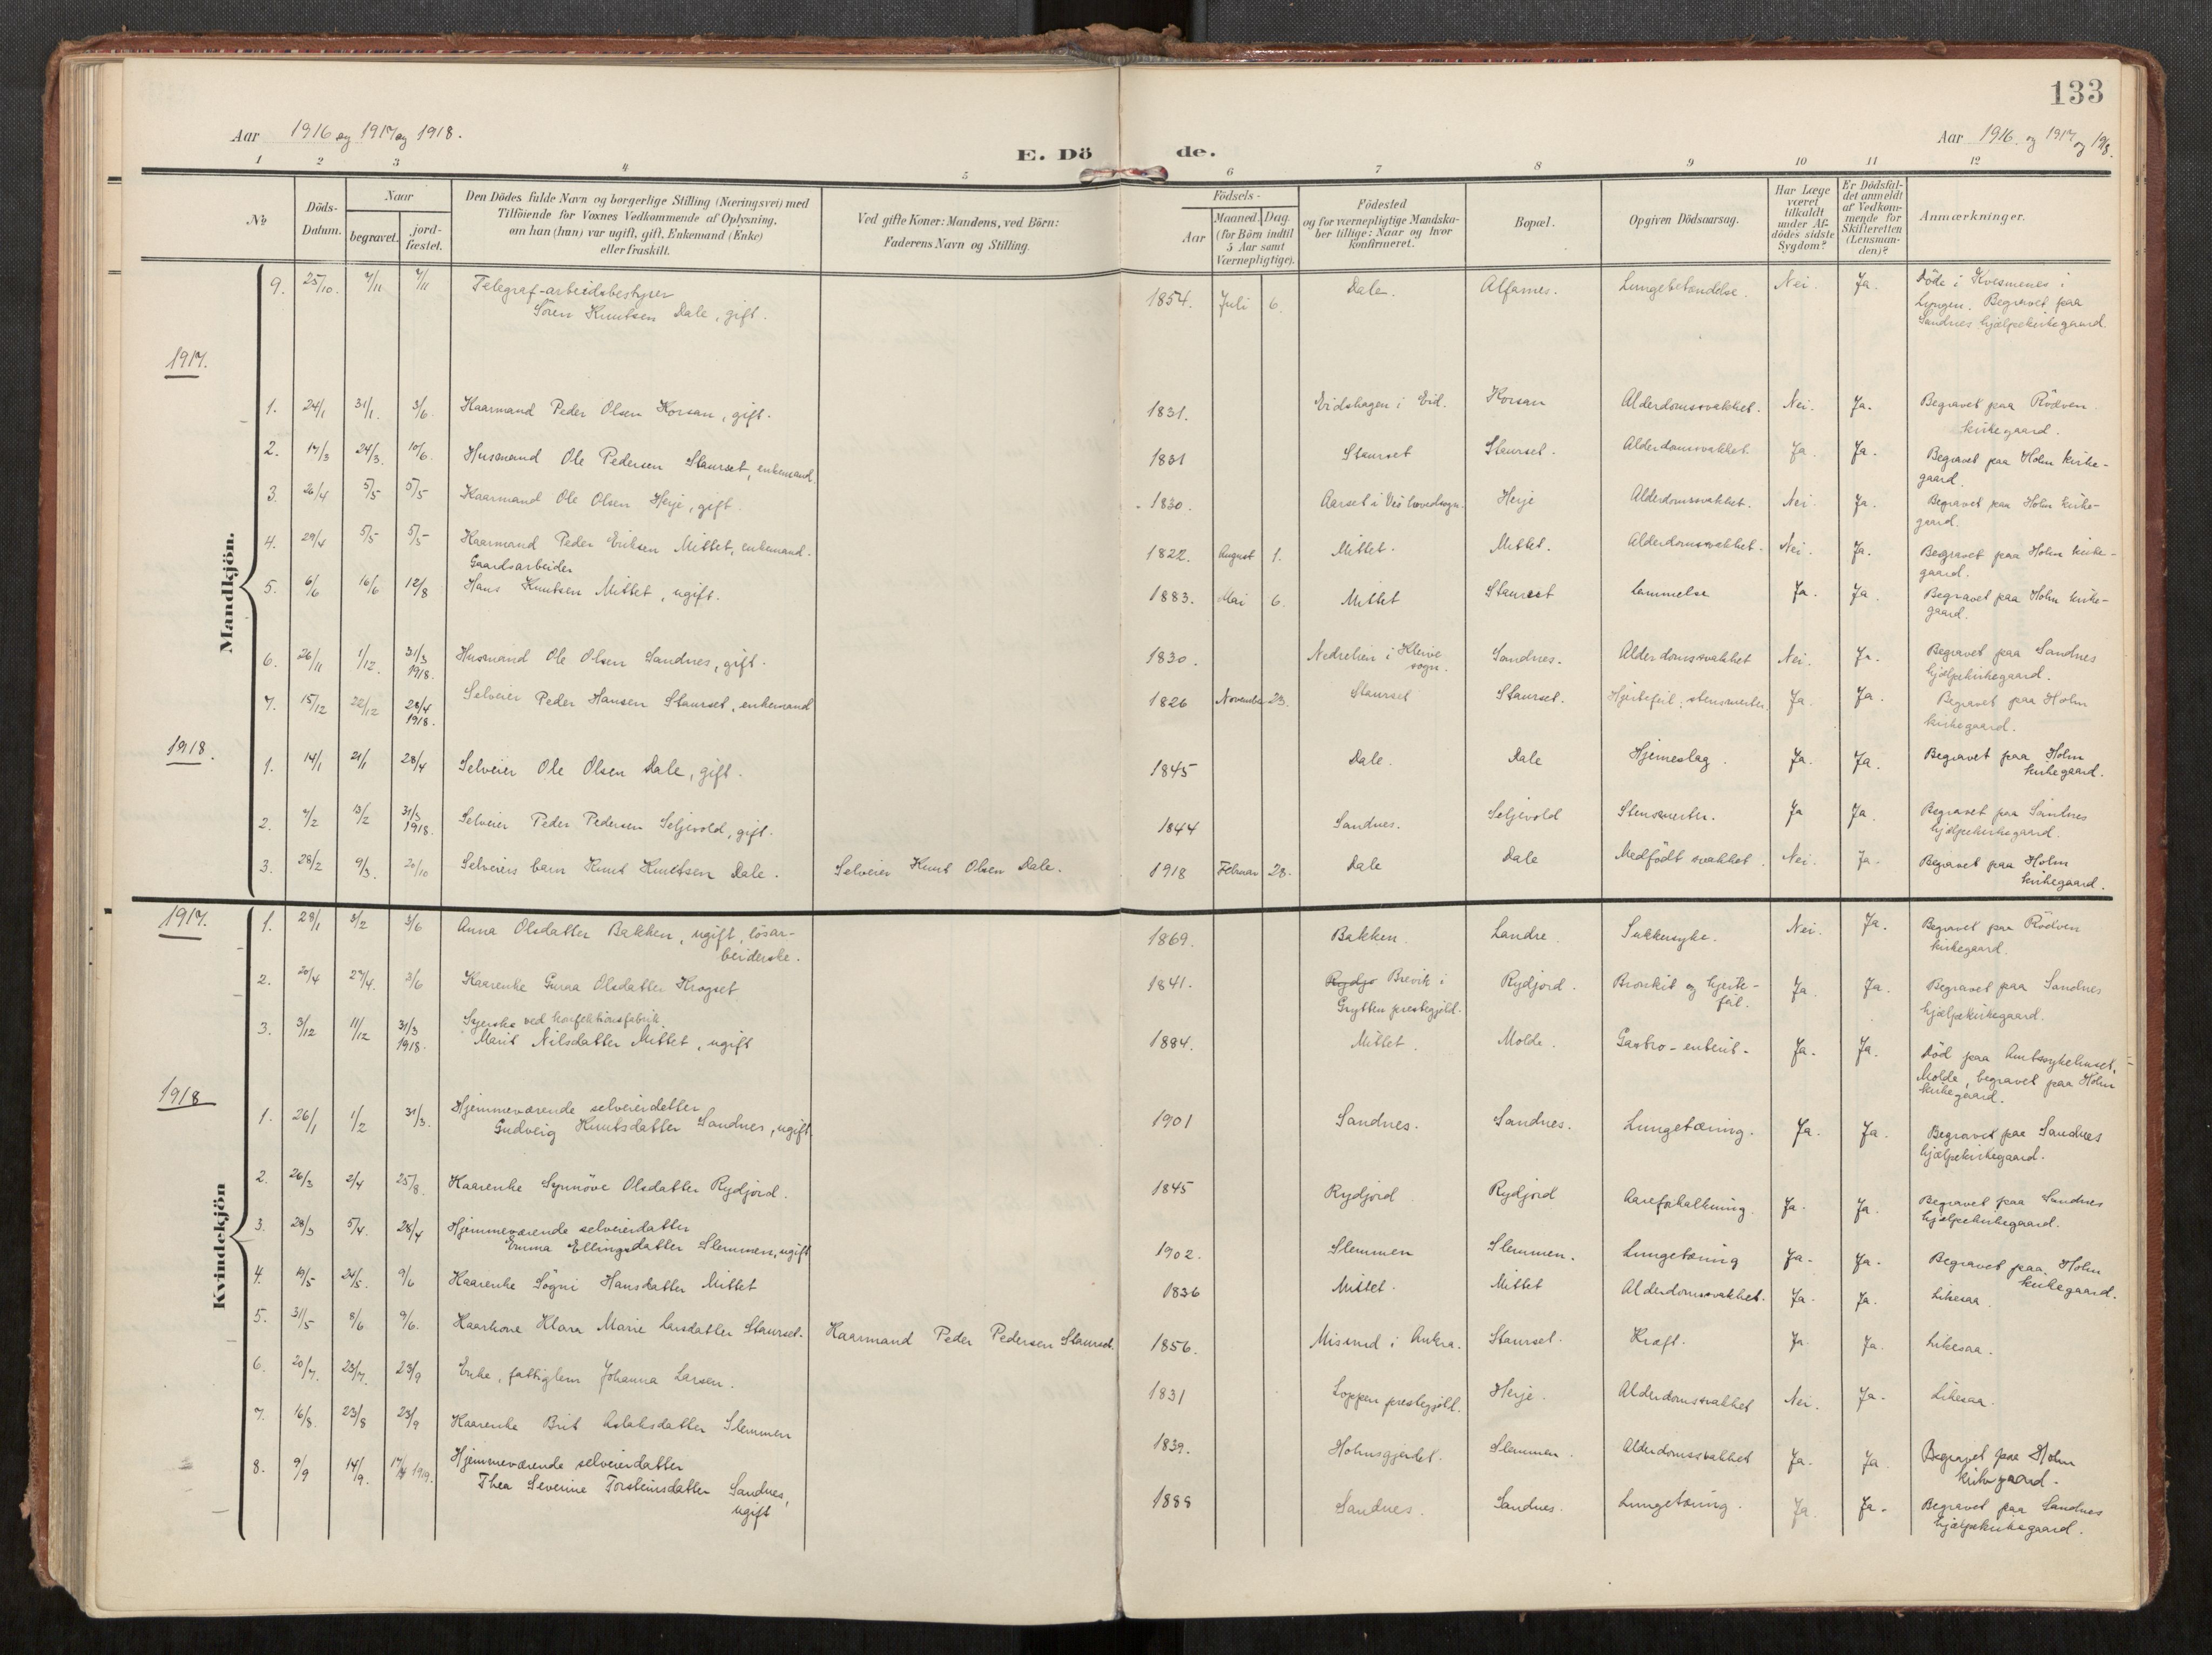 133
Aar 1916 og 1917 og 1918.
Aar 1916. og 1917 og 1918.
E. Dö
de.
1 2 3 4 5 6 7 8 9 10 11 12
No
Döds-Datum.
Naar
begravet.
jord-fæstet.
Den Dödes fulde Navn og borgerlige Stilling (Næringsvei) med
Tilföiende for Voxnes Vedkommende af Oplysning,
om han (hun) var ugift, gift, Enkemand (Enke)
eller fraskilt.
Ved gifte Koner: Mandens, ved Börn:
Faderens Navn og Stilling.
Födsels-
Aar
Maaned. Dag.
(for Börn indtil
5 Aar samt
Værnepligtige).
Födested
og for værnepligtige Mandska-
ber tillige: Naar og hvor
konfirmeret.
Bopæl.
Opgiven Dödsaarsag.
Har Læge
været
tilkaldt
under Af-
dödes sidste
Sygdom?
Er Dödsfal-
det anmeldt
af Vedkom-
mende for
Skifteretten
(Lensman-
den)?
Anmærkninger.
Mandkjön.
9. 25/10. 7/11 7/11 Telegraf-arbeidsbestyrer
Sören Knutsen Dale, gift. 1854. Juli 6. Dale. Alfarnes. Lungebetændelse. Nei. Ja. Döde i Kvesmenes i
Lyngen. Begravet paa
Sandnes hjælpekirkegaard.
1917.
1. 24/1 31/1. 3/6. Kaarmand Peder Olsen Korsan, gift. 1831. Eidshagen i Eid. Korsan Alderdomssvakhet. Nei. Ja. Begravet paa Rödven
kirkegaard.
2. 17/3 24/3. 10/6. Husmand Ole Pedersen Staurset, enkemand. 1831 Staurset Staurset. Alderdomssvakhet Ja. Ja. Begravet paa Holm kirke-
gaard.
3. 26/4 5/5 5/5 Kaarmand Ole Olsen Herje, gift. 1830. Aarset i Veö hovedsogn. Herje Alderdomssvakhet. Nei. Ja. Begravet paa Holm kirke-
gaard.
4. 29/4 5/5 5/5 Kaarmand Peder Eriksen Mittet, enkemand. 1822. August 1. Mittet. Mittet. Alderdomssvakhet. Nei. Ja. Begravet paa Holm kirke-
gaard.
Gaardsarbeider
5. 6/6 16/6 12/8 Hans Knutsen Mittet, ugift. 1883. Mai 6. Mittet Staurset Lammelse Ja. Ja. Begravet paa Holm kirke-
gaard.
6. 26/11 1/12. 31/3 1918. Husmand Ole Olsen Sandnes, gift. 1830. Nedrelien i Kleive
sogn. Sandnes. Alderdomssvakhet Nei. Ja. Begravet paa Sandnes
hjælpekirkegaard.
7. 15/12 22/12 28/4 1918. Selveier Peder Hansen Staurset, enkemand 1826 November 23. Staurset Staurset. Hjertefeil, stensmerter. Ja. Ja. Begravet paa Holm
kirkegaard.
1918.
1. 14/1 21/1 28/4 Selveier Ole Olsen Dale, gift. 1845 Dale. Dale Hjerneslag. Ja. Ja. Begravet paa Holm
kirkegaard.
2. 7/2 13/2 31/3 1918. Selveier Peder Pedersen Seljevold, gift. 1844 Sandnes. Seljevold Stensmerter. Ja Ja. Begravet paa Sandnes
hjælpekirkegaard.
3. 28/2 9/3. 20/10 Selveiers barn Knut Knutsen Dale. Selveier Knut Olsen Dale. 1918 Februar 28. Dale Dale Medfödt svakhet. Nei. Ja. Begravet paa Holm
kirkegaard.
Kvindekjön
1917.
1. 28/1 3/2 3/6 Anna Olsdatter Bakken, ugift, lösar-
beiderske. 1869. Bakken. Landre. Sukkersyke. Nei. Ja. Begravet paa Rödven
kirkegaard.
2. 20/4 27/4. 3/6 Kaarenke Guraa Olsdatter Krogset 1841. Rydjo Brevik i
Grytten prestegjeld. Rydjord. Bronkit og hjerte-
feil. Ja. Ja. Begravet paa Sandnes
hjælpekirkegaard.
3. 3/12 11/12 31/3 1918. Syerske ved konfektionsfabrik
Marit Nilsdatter Mittet, ugift 1894. Mittet. Molde. Gastro-enterit. Ja. Ja. Död paa Amtssykehuset,
Molde, begravet paa Holm
kirkegaard.
1918
1. 26/1 1/2 31/3. Hjemmeværende selveierdatter
Gudveig Knutsdatter Sandnes, ugift. 1901 Sandnes. Sandnes. Lungetæring. Ja. Ja. Begravet paa Sandnes
hjælpekirkegaard.
2. 26/3 2/4 25/8. Kaarenke Synnöve Olsdatter Rydjord. 1845 Rydjord Rydjord Aareforkalkning. Ja. Ja. Begravet paa Sandnes
hjælpekirkegaard.
3. 28/3 5/4. 28/4 Hjemmeværende selveierdatter
Emma Ellingsdatter Slemmen, ugift 1902. Slemmen Slemmen. Lungetæring Ja. Ja. Begravet paa Holm
kirkegaard.
4. 19/5 24/5. 9/6 Kaarenke Sögni Hansdatter Mittet 1836 Mittet. Mittet Alderdomssvakhet. Ja. Ja. Likesaa.
5. 31/5 8/6 9/6. Kaarkone Klara Marie Larsdatter Staurset. Kaarmand Peder Pedersen Staurset. 1856. Misund i Aukra. Staurset. Kræft. Ja. Ja. Likesaa.
6. 20/7. 23/7. 23/9 Enke, fattiglem Johanna Larsen. 1831 Loppen prestegjeld. Herje. Alderdomssvakhet Nei. Ja. Likesaa.
7. 16/8. 23/8 23/9 Kaarenke Brit Aslaksdatter Slemmen 1839. Holmsgjerdet. Slemmen. Alderdomssvakhet Ja. Ja. Begravet paa Holm
kirkegaard.
8. 9/9 14/9. 17/4 1919. Hjemmeværende selveierdatter
Thea Severine Torsteinsdatter Sandnes,
ugift 1888 Sandnes. Sandnes. Lungetæring. Ja. Ja. Begravet paa Sandnes
hjælpekirkegaard.